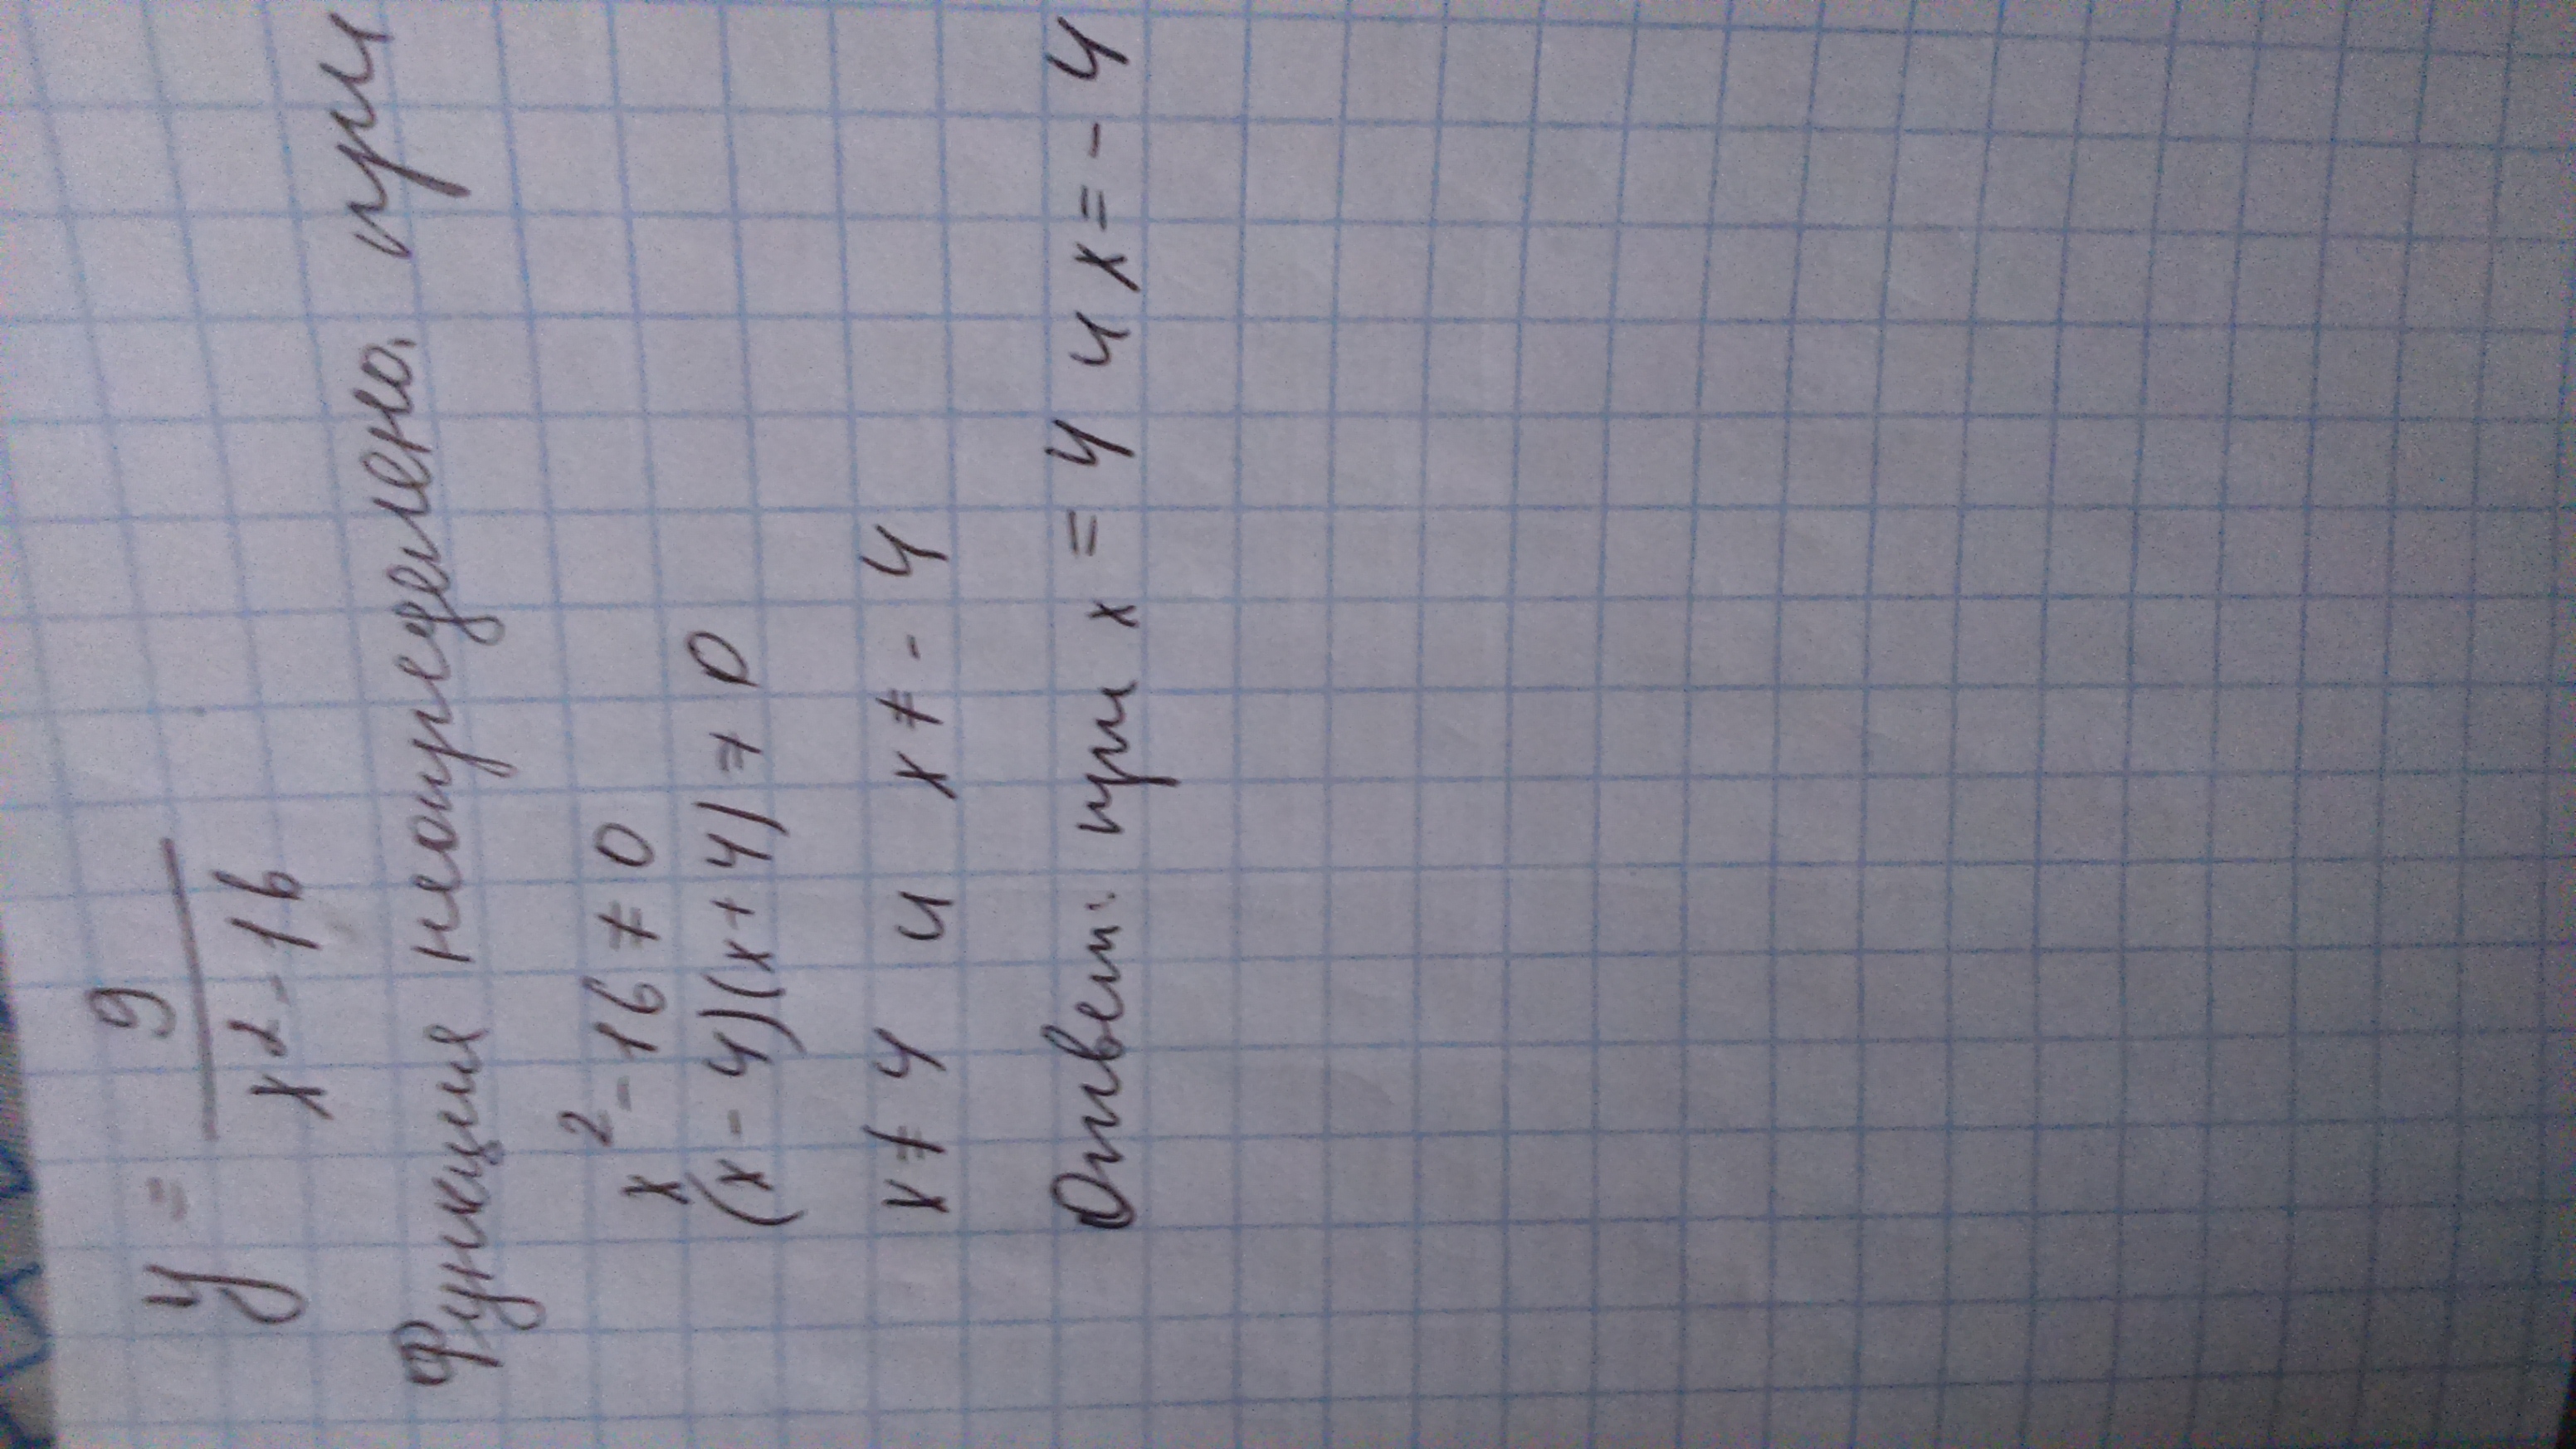 y = 9 / x² - 16
Функция неопределено. при
x² - 16 ≠ 0
(x - 4)(x + 4) ≠ 0
x ≠ 4 и x ≠ - 4
Ответ: при x = 4 и x = - 4